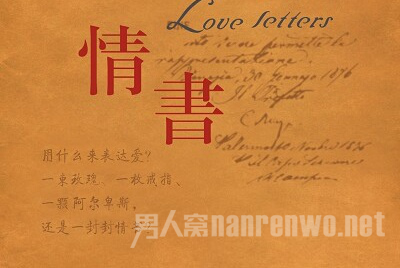 Love letters
permette la
rappresentazione.
30 Gennajo 1876
Il Prefetto
1876
情書
用什么来表达爱?
一束玫瑰、一枚戒指、
一颗阿尔卑斯。
还是一封封情书
男人窝nanrenwo.net